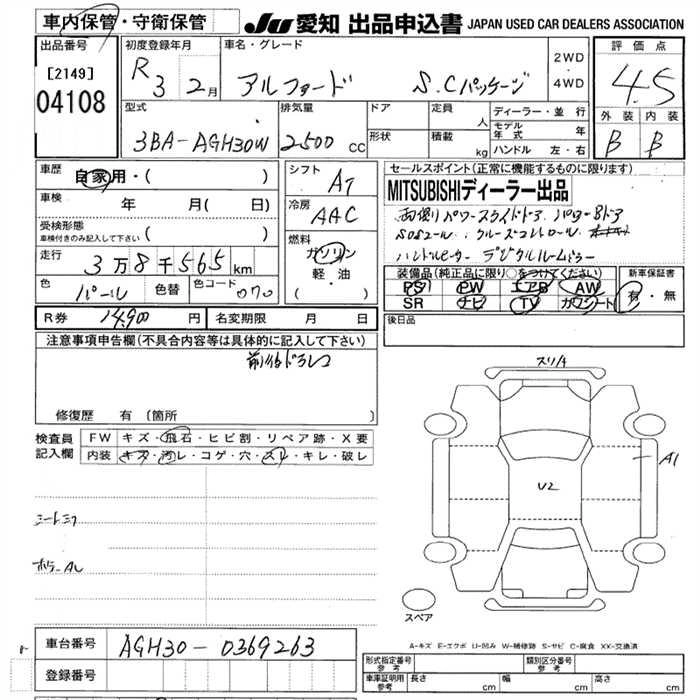 車内保管・守衛保管
JU 愛知 出品申込書 JAPAN USED CAR DEALERS ASSOCIATION
出品番号
[2149]
04108
初度登録年月
R 3 2月
車名・グレード
アルファード S.Cパッケージ
2WD
・
4WD
評価点
4.5
外装 内装
B B
型式
3BA-AGH30W
排気量
2500 CC
ドア
形状
定員 人
積載 kg
ディーラー・並行
モデル年式 年
ハンドル 左・右
車歴
自家用・( )
車検 年 月( 日)
受検形態
車検付きのみ記入して下さい ( )
走行
3万8千565km
色
パール
色替
色コード
070
シフト
AT
冷房
AAC
燃料
ガソリン
軽・油
( )
セールスポイント(正常に機能するものに限ります)
MITSUBISHIディーラー出品
両側パワースライドドア パワーBドア
クルーズコントロール
デジタルルームミラー
装備品(純正品に限り○をつけてください)
PS PW エアB AW
SR ナビ TV カワシート
新車保証書
有・無
R券 14,900 円
名変期限 月 日
後日品
注意事項申告欄(不具合内容等は具体的に記入して下さい)
前後ドラレコ
修復歴 有〔箇所
検査員
記入欄
FW キズ・飛石・ヒビ割・リペア跡・X要
内装 キズ・汚レ・コゲ・穴・スレ・キレ・破レ
スリキ
A1
U2
スペア
A-キズ E-エクボ U-凹み W-補修跡 S-サビ C-腐食 XX-交換済
車台番号
AGH30-0369263
登録番号
形式指定番号
参考
類別区分番号
参考
車庫証明用
参考
長さ cm 幅 cm 高さ cm